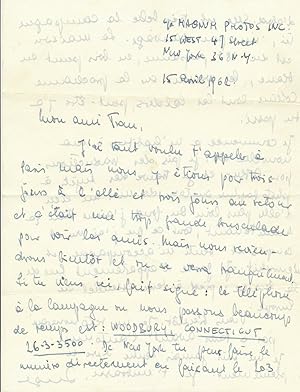 c/o MAGNUM PHOTOS INC.
15 WEST 47 Street
New York 36 N.Y.
15 avril 1962
Mon ami
J'ai tant voulu t'appeler à
Paris mais nous y étions pour trois
jours à l'allé et trois jours au retour
et c'était une trop grande bousculade
pour voir les amis. Mais nous revien-
drons bientôt et on se verra tranquillement.
Si tu viens ici, fait signe: le téléphone
à la campagne ou nous passons beaucoup
de temps est: WOODBURY CONNECTICUT
26-3-3500. De New York tu peux faire le
numéro directement en faisant le 203